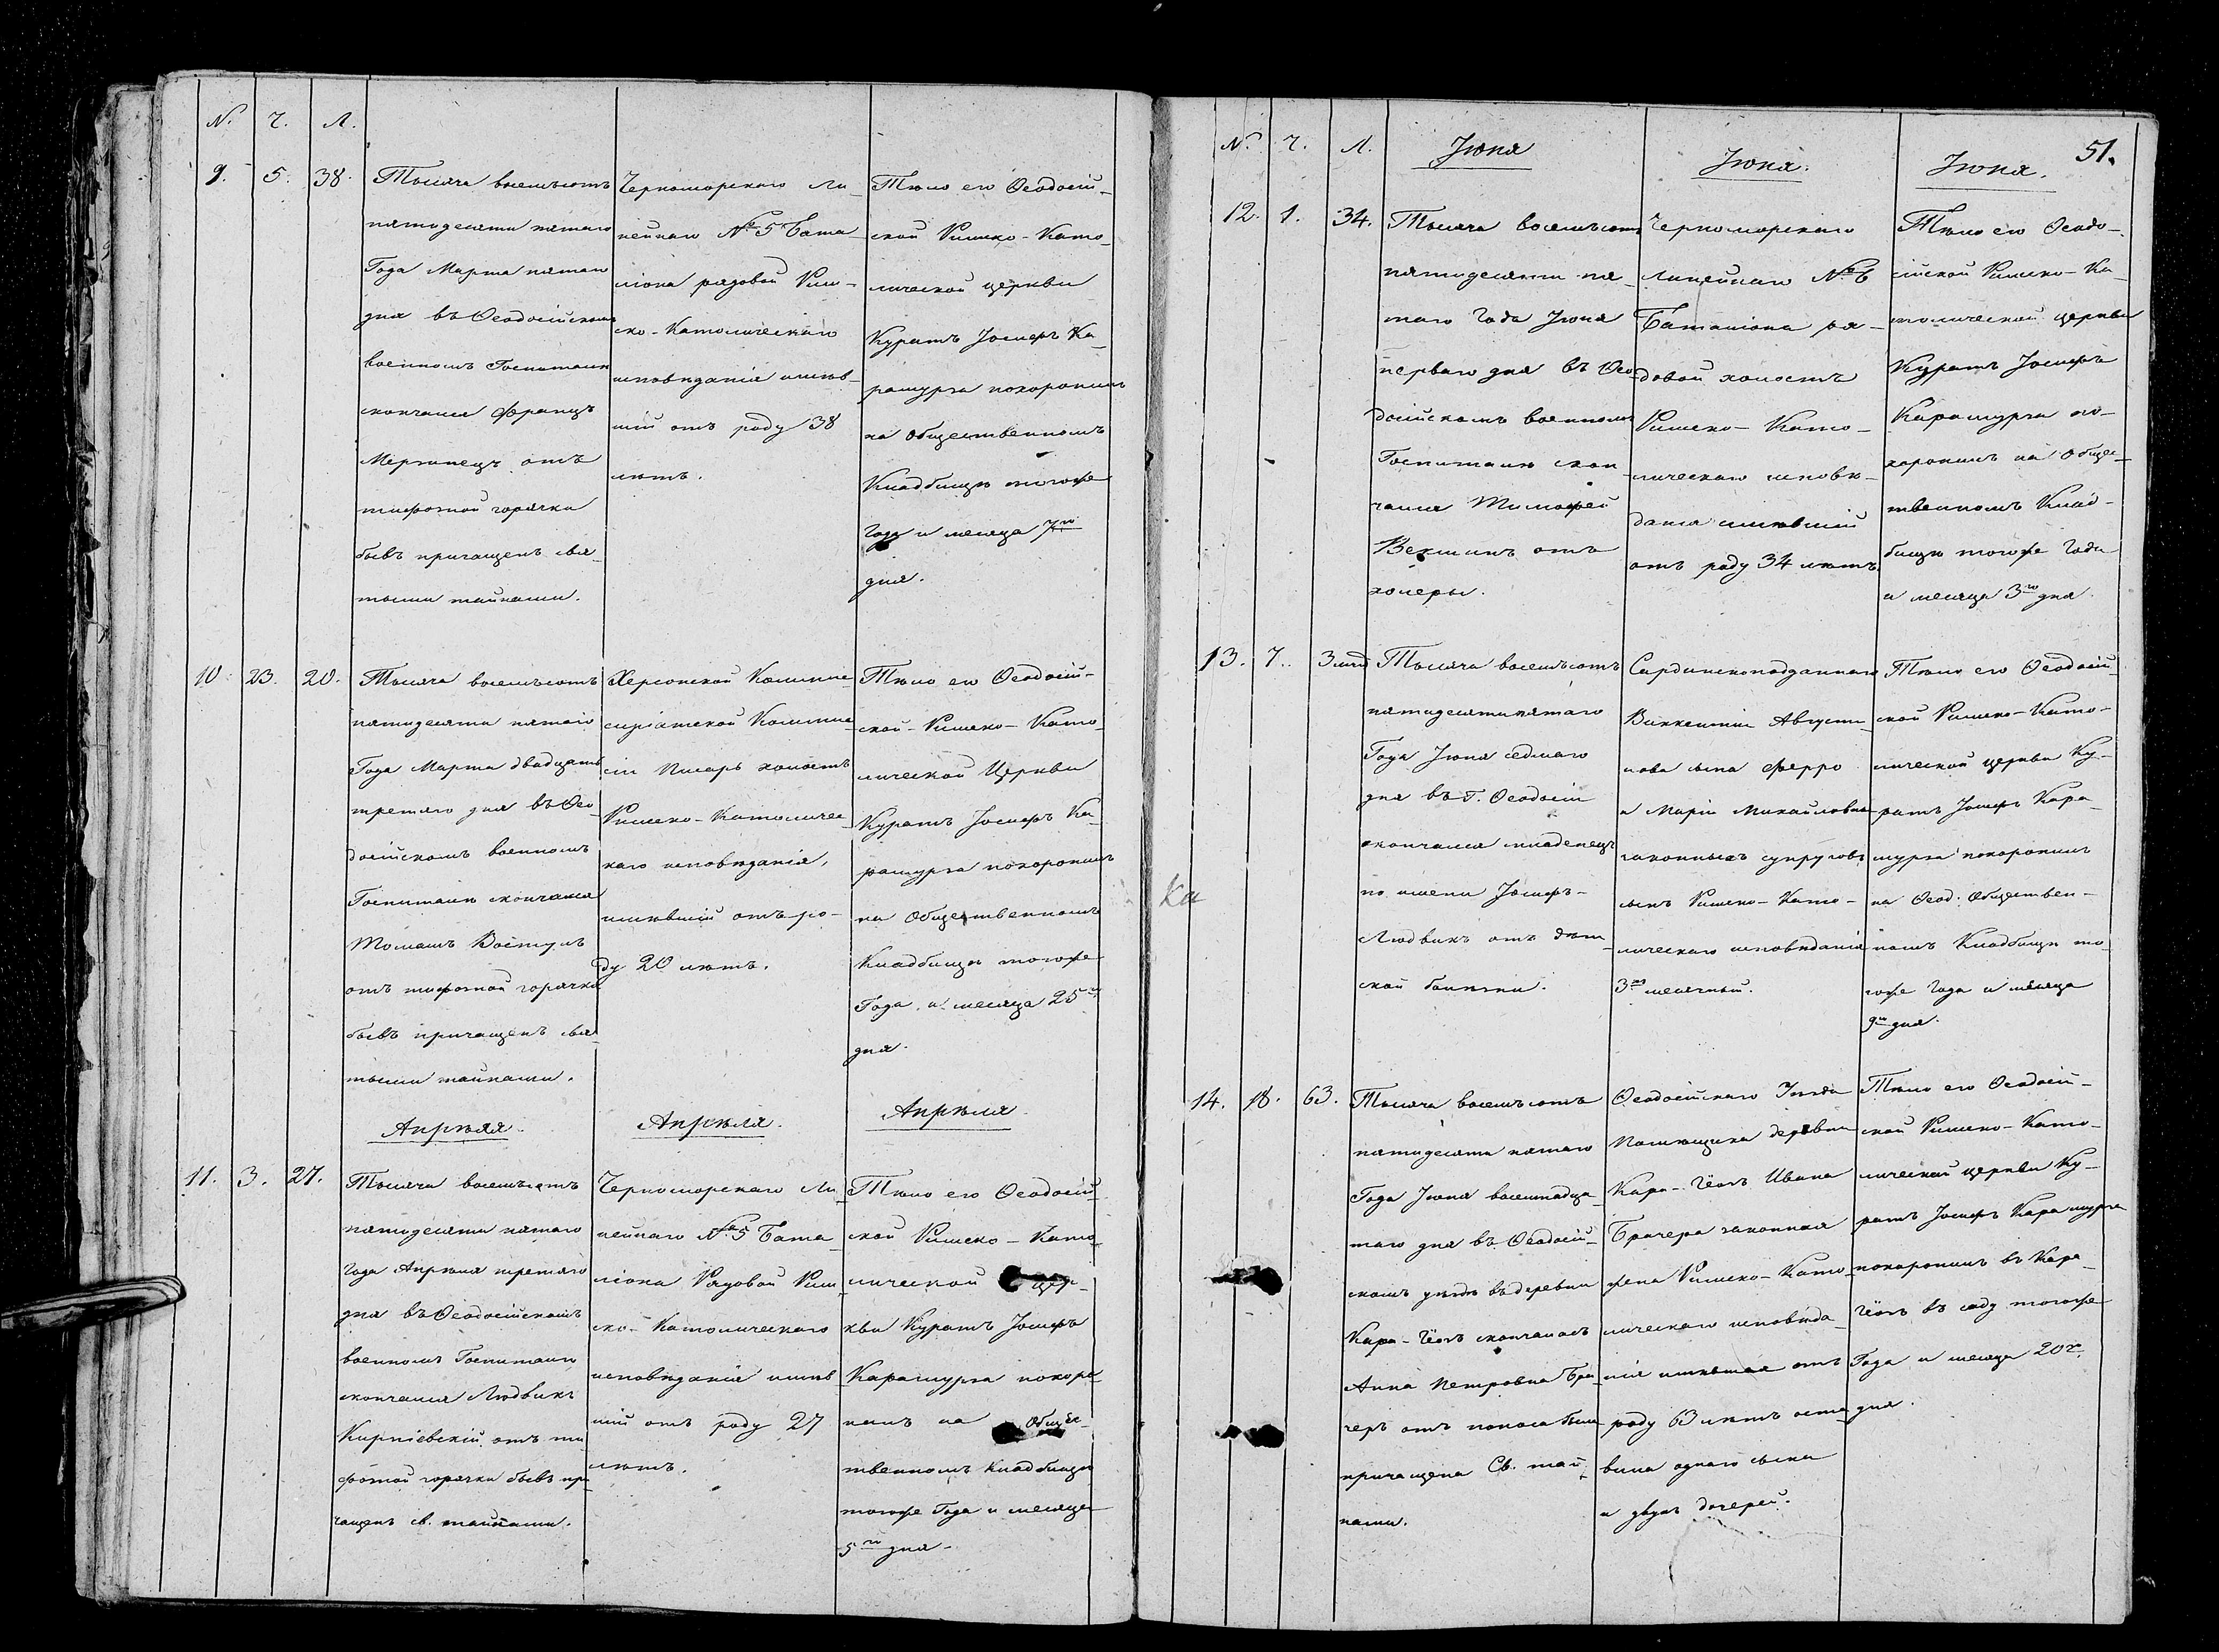 N. Ч. Л.
9. 5. 38.
Тысяча восемьсотъ
пятидесяти пятаго
Года Марта пятаго
дня въ Ѳеодосійскомъ
военномъ Госпиталѣ
скончался Францъ
отъ
тифозной горячки
бывъ причащенъ свя-
тыми тайнами.
Черноморскаго Ли-
нейнаго № 5 Бата-
ліона рядовой Рим-
ско-Католическаго
исповѣданія имѣв-
шій отъ роду 38
лѣтъ.
Тѣло его Ѳеодосій-
ской Римско-Като-
лической церкви
Куратъ Іосифъ Ка-
рашурга похоронилъ
на Общественномъ
Кладбищѣ тогоже
Года и месяца 7го
дня.
10. 23. 20.
Тысяча восемьсотъ
пятидесяти пятаго
Года Марта двадцать
третяго дня въ Ѳео-
досійскомъ военномъ
Госпиталѣ скончался
Томашъ Войтулъ
отъ тифозной горячки
бывъ причащенъ свя-
тыми тайнами.
Херсонской Коммис-
саріатской Коммис-
сіи Писарь холостъ
Римско-Католичес-
каго исповѣданія,
имѣвшій отъ ро-
ду 20 лѣтъ.
Тѣло его Ѳеодосій-
ской Римско-Като-
лической Церкви
Куратъ Іосифъ Ка-
рашурга похоронилъ
на Общественномъ
Кладбищѣ тогоже
Года и месяца 25го
дня.
Апрѣля.
Апрѣля.
Апрѣля.
11. 3. 27.
Тысяча восемьсотъ
пятидесяти пятаго
Года Апрѣля третяго
дня въ Ѳеодосійскомъ
военномъ Госпиталѣ
скончался Людвикъ
Кирпіевскій отъ ти-
фозной горячки бывъ при-
чащенъ св. тайнами.
Черноморскаго Ли-
нейнаго № 5 Бата-
ліона Рядовой Рим-
ско-Католическаго
исповѣданія имѣв-
шій отъ роду 27
лѣтъ.
Тѣло его Ѳеодосій-
ской Римско-Като-
лической цер-
кви Куратъ Іосифъ
Карашурга похоро-
нилъ на Общес-
твенномъ Кладбищѣ
тогоже Года и месяца
5го дня.
51.
N. Ч. Л.
Іюня
Іюня.
Іюня.
12. 1. 34.
Тысяча восемьсотъ
пятидесяти пя-
таго Года Іюня
перваго дня въ Ѳео-
досійскомъ военномъ
Госпиталѣ скон-
чался Тимофей
отъ
холеры.
Черноморскаго
линейнаго № 6
Баталіона ря-
довой холостъ
Римско-Като-
лическаго исповѣ-
данія имѣвшій
отъ роду 34 лѣтъ.
Тѣло его Ѳеодо-
сійской Римско-Ка-
толической церкви
Куратъ Іосифъ
Карашурга по-
хоронилъ на Общес-
твенномъ Клад-
бищѣ тогоже Года
и месяца 3го дня.
13. 7. 3 мѣс
Тысяча восемьсотъ
пятидесятипятаго
Года Іюня седмаго
дня въ г. Ѳеодосіи
скончался младенецъ
по имени Іосифъ-
Людвикъ отъ дѣт-
ской болѣзни.
Сардинскоподданнаго
Викентія Августи-
нова сына Ферро
и Маріи Михайловны
законныхъ супруговъ
сынъ Римско-Като-
лическаго исповѣданія
3хъ месячный.
Тѣло его Ѳеодосій-
ской Римско-Като-
лической церкви Ку-
ратъ Іосифъ Кара-
шурга похоронилъ
на Ѳеод. Обществен-
номъ Кладбищѣ то-
гоже Года и месяца
9го дня.
Ка
14. 18. 63.
Тысяча восемьсотъ
пятидесяти пятаго
Года Іюня восемнадца-
таго дня въ Ѳеодосій-
скомъ уѣздѣ въ деревни
Кара-Гёзъ скончалась
Анна Петровна Бра-
черъ отъ поноса была
причащена Св. тай-
нами.
Ѳеодосійскаго Уезда
Помѣщика деревни
Кара-Гёзъ Ивана
Брачера законная
жена Римско-Като-
лическаго исповѣда-
нія имѣвшая отъ
роду 63 лѣтъ оста-
вила однаго сына
и двухъ дочерей.
Тѣло его Ѳеодосій-
ской Римско-Като-
лической церкви Ку-
ратъ Іосифъ Карашурга
похоронилъ въ Кара-
Гёзъ въ саду тогоже
Года и месяца 20го
дня.